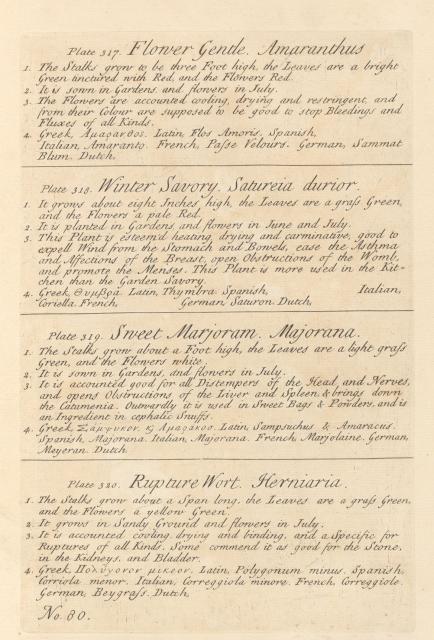 Plate 317. Flower Gentle. Amaranthus
1. The Stalks grow to be three Foot high, the Leaves are a bright
Green tinctured with Red, and the Flowers Red.
2. It is sown in Gardens, and flowers in July.
3. The Flowers are accounted cooling, drying and restringent, and
from their Colour are supposed to be good to stop Bleedings and
Fluxes of all Kinds.
4. Greek, Αμαρανθος. Latin, Flos Amoris. Spanish,
Italian, Amaranto. French, Passe Velours. German, Sammat
Blum. Dutch,
Plate 318. Winter Savory. Satureia durior.
1. It grows about eight Inches high, the Leaves are a grass Green,
and the Flowers a pale Red.
2. It is planted in Gardens and flowers in June and July.
3. This Plant is esteem'd heating, drying and carminative, good to
expell Wind from the Stomach and Bowels, ease the Asthma
and Affections of the Breast, open Obstructions of the Womb,
and promote the Menses. This Plant is more used in the Kit-
chen than the Garden Savory.
4. Greek, Θυμβρα. Latin, Thymbra. Spanish, Italian,
Coriella. French, German, Saturon. Dutch,
Plate 319. Sweet Marjoram. Majorana.
1. The Stalks grow about a Foot high, the Leaves are a light grass
Green, and the Flowers white.
2. It is sown in Gardens, and flowers in July.
3. It is accounted good for all Distempers of the Head, and Nerves,
and opens Obstructions of the Liver and Spleen, & brings down
the Catamenia. Outwardly it is used in Sweet Bags & Powders, and is
an Ingredient in cephalic Snuffs.
4. Greek, Σαμψυκον, ϗ Αμαρακος. Latin, Sampsuchus & Amaracus.
Spanish, Majorana. Italian, Majorana. French, Marjolaine. German,
Meyeran. Dutch
Plate 320. Rupture Wort. Herniaria.
1. The Stalks grow about a Span long, the Leaves are a grass Green,
and the Flowers a yellow Green.
2. It grows in Sandy Ground and flowers in July.
3. It is accounted cooling, drying and binding, and a Specific for
Ruptures of all Kinds. Some commend it as good for the Stone,
in the Kidneys, and Bladder.
4. Greek, Πολυγονον μικρον. Latin, Polygonum minus. Spanish,
Corriola menor. Italian, Correggiola minore. French, Correggiole.
German, Beygrass. Dutch,
No. 80.